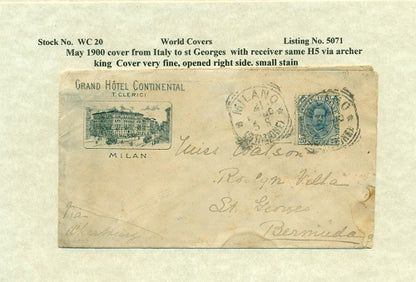 Stock No. WC 20 World Covers Listing No. 5071
May 1900 cover from Italy to st Georges with receiver same H5 via archer
king Cover very fine, opened right side. small stain
GRAND HÔTEL CONTINENTAL
T. CLERICI
MILAN
MILANO
Miss Watson
Roslyn Villa
St. Georges
Bermuda
Via